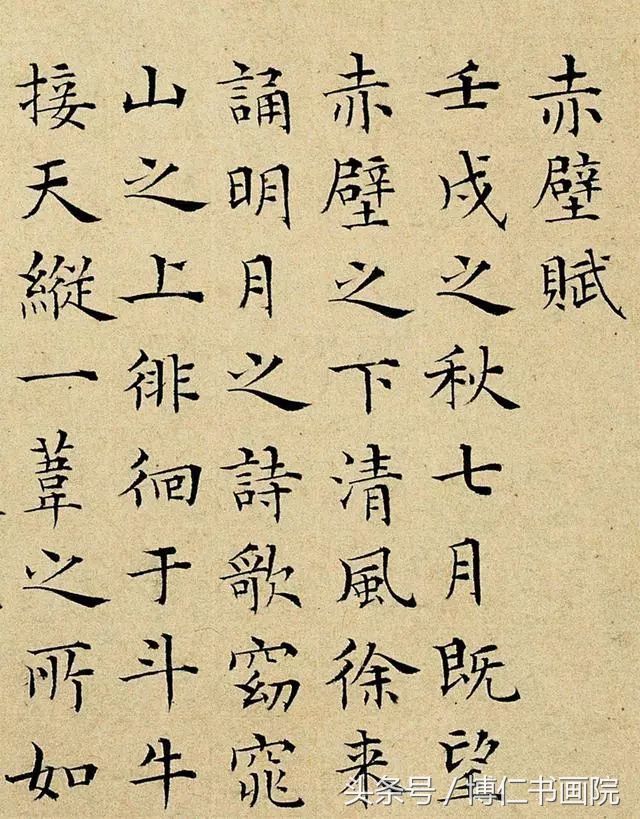 赤壁賦
壬戌之秋七月既望
赤壁之下清風徐来
誦明月之詩歌窈窕
山之上徘徊于斗牛
接天縱一葦之所如
头条号 / 博仁书画院